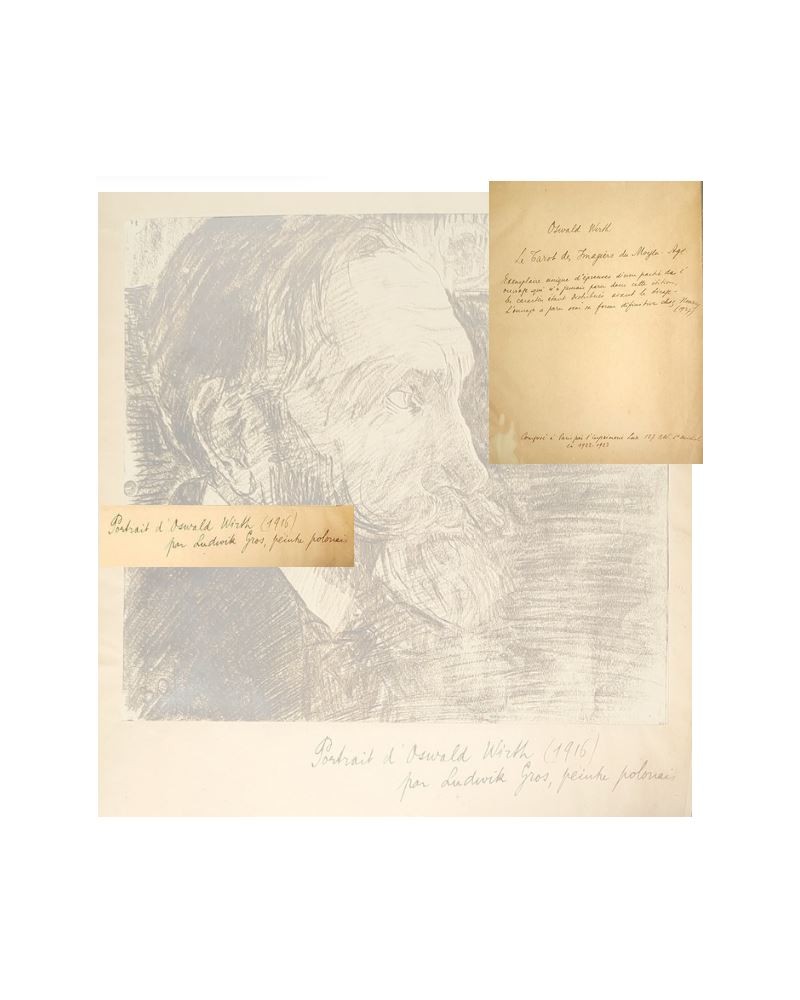 Oswald Wirth
Le Tarot des Imagiers du Moyen-Age
Exemplaire unique d'épreuves d'une partie de l'
ouvrage qui n'a jamais paru dans cette édition,
les caractères étant distribués avant le tirage.
L'ouvrage a paru sous sa forme définitive chez
(1927)
Composé à Paris par l'imprimerie Lux 127 Bld. St Michel
en 1922-1923
Portrait d'Oswald Wirth (1916)
par Ludwik Gros, peintre polonais
Portrait d'Oswald Wirth (1916)
par Ludwik Gros, peintre polonais